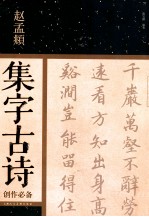 赵孟頫
集字古诗
创作必备
千岩萬壑不辭勞
遠看方知出身高
谿澗豈能留得住